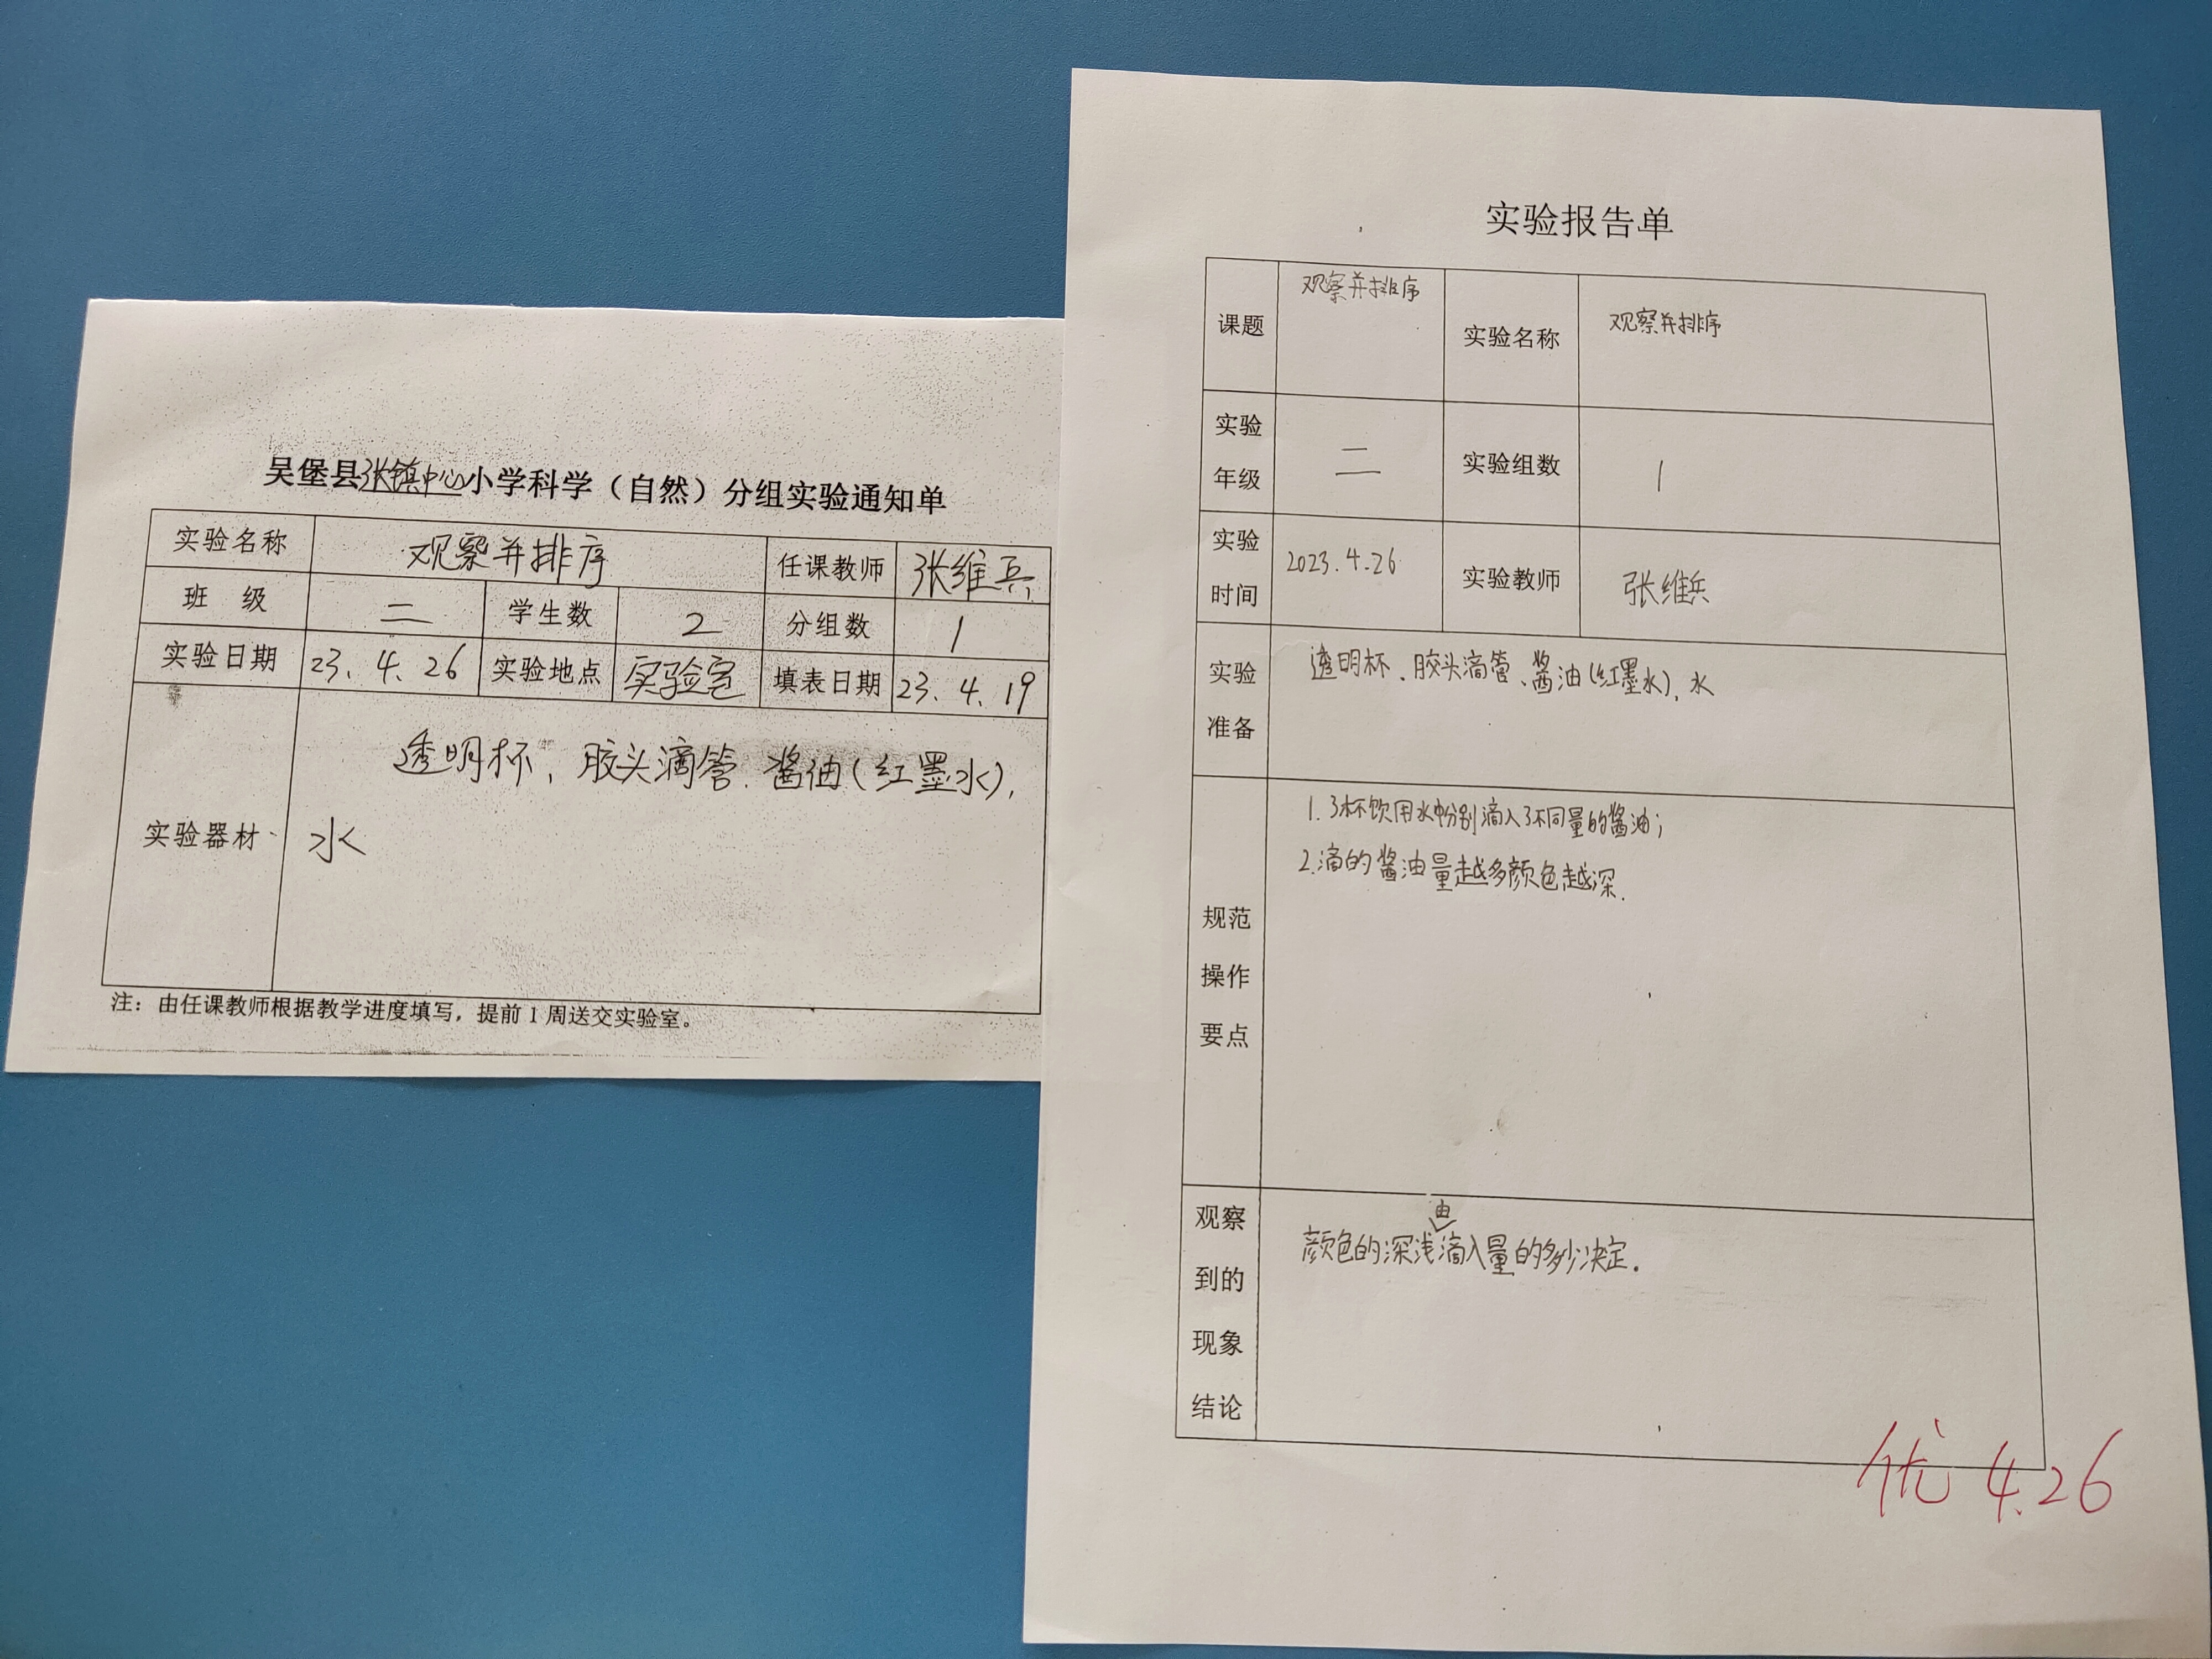 吴堡县张镇中心小学科学（自然）分组实验通知单
实验名称 观察并排序 任课教师 张维兵
班 级 二 学生数 2 分组数 1
实验日期 23.4.26 实验地点 实验室 填表日期 23.4.19
实验器材 透明杯、胶头滴管、酱油(红墨水)、
水
注：由任课教师根据教学进度填写，提前1周送交实验室。
实验报告单
课题 观察并排序 实验名称 观察并排序
实验年级 二 实验组数 1
实验时间 2023.4.26 实验教师 张维兵
实验准备 透明杯、胶头滴管、酱油(红墨水)、水
规范操作要点
1.3杯饮用水中分别滴入了不同量的酱油；
2.滴的酱油量越多颜色越深.
观察到的现象结论
颜色的深浅由滴入量的多少决定.
优 4.26